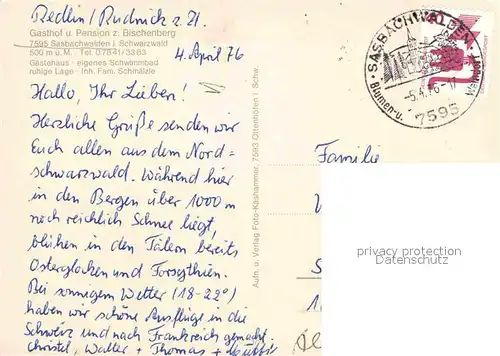 Redlin/Rudnick z. Zt.
Gasthof u. Pension z. Bischenberg
7595 Sasbachwalden i. Schwarzwald
500 m ü. M. Tel. 0 78 41/33 83
Gästehaus - eigenes Schwimmbad
ruhige Lage - Inh. Fam. Schmälzle
4. April 76
Hallo, Ihr Lieben!
Herzliche Grüße senden wir
Euch allen aus dem Nord=
schwarzwald. Während hier
in den Bergen über 1000 m
noch reichlich Schnee liegt,
blühen in den Tälern bereits
Osterglocken und Forsythien.
Bei sonnigem Wetter (18-22°)
haben wir schöne Ausflüge in die
Schweiz und nach Frankreich gemacht.
Christel, Walter + Thomas +
Aufn. u. Verlag Foto-Käshammer, 7593 Ottenhöfen i. Schw.
SASBACHWALDEN
Blumen- u.
7595
Familie
privacy protection